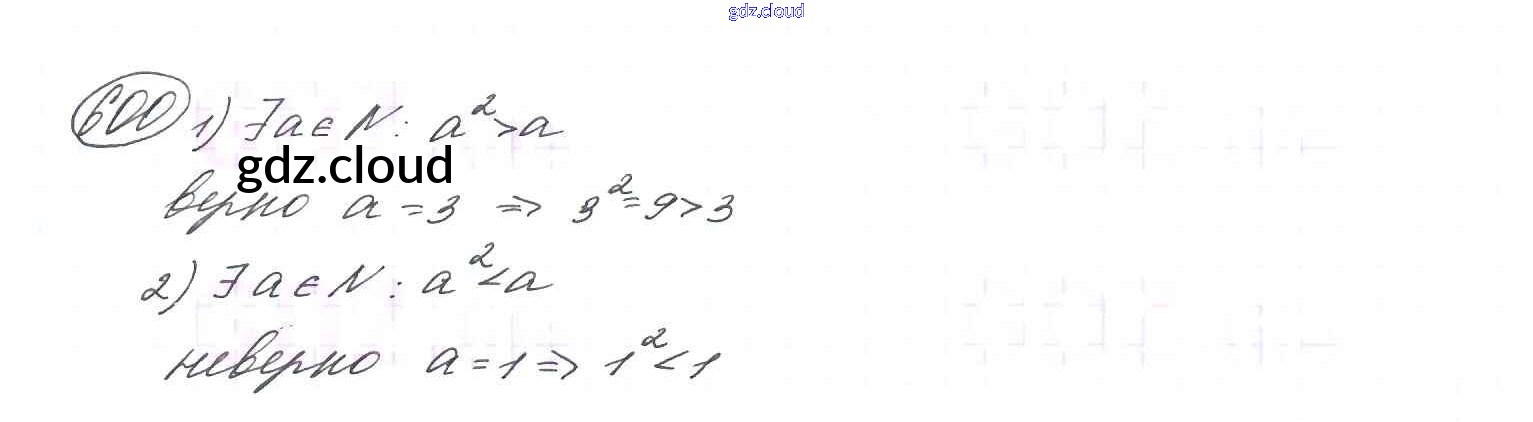 gdz.cloud
600 1) ∃a∈N: a²>a
gdz.cloud
верно a=3 => 3²=9>3
2) ∃a∈N: a²<a
неверно a=1 => 1²<1